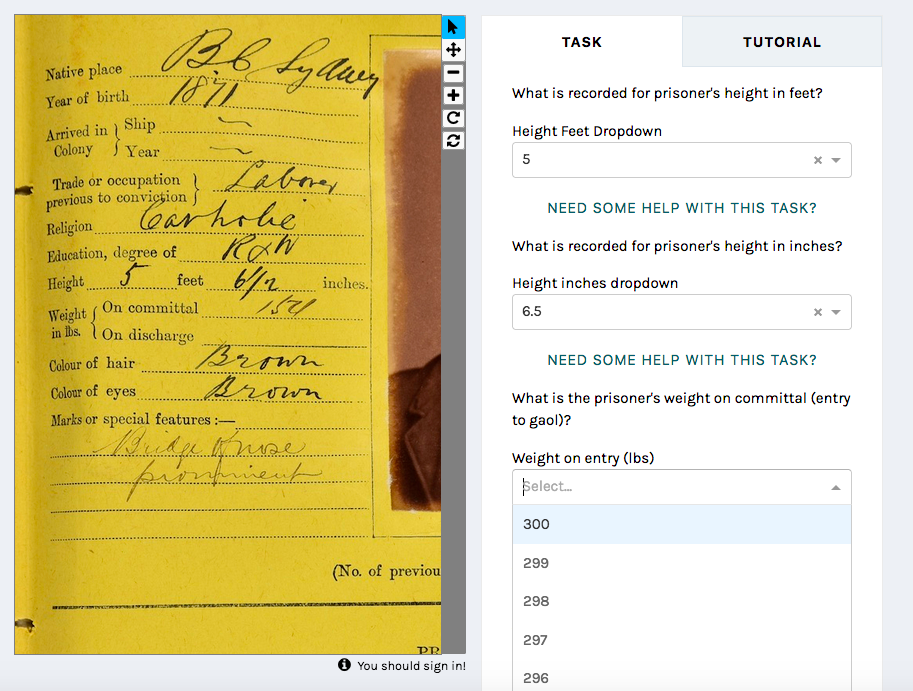 Native place BC Sydney
Year of birth 1871
Arrived in Colony } Ship ~
Year ~
Trade or occupation previous to conviction } Laborer
Religion Catholic
Education, degree of R & W
Height 5 feet 6 1/2 inches.
Weight in lbs. { On committal 154
On discharge
Colour of hair Brown
Colour of eyes Brown
Marks or special features :—
Bridge of nose
prominent
(No. of previou
PR
You should sign in!
TASK
TUTORIAL
What is recorded for prisoner's height in feet?
Height Feet Dropdown
5
NEED SOME HELP WITH THIS TASK?
What is recorded for prisoner's height in inches?
Height inches dropdown
6.5
NEED SOME HELP WITH THIS TASK?
What is the prisoner's weight on committal (entry
to gaol)?
Weight on entry (lbs)
Select...
300
299
298
297
296